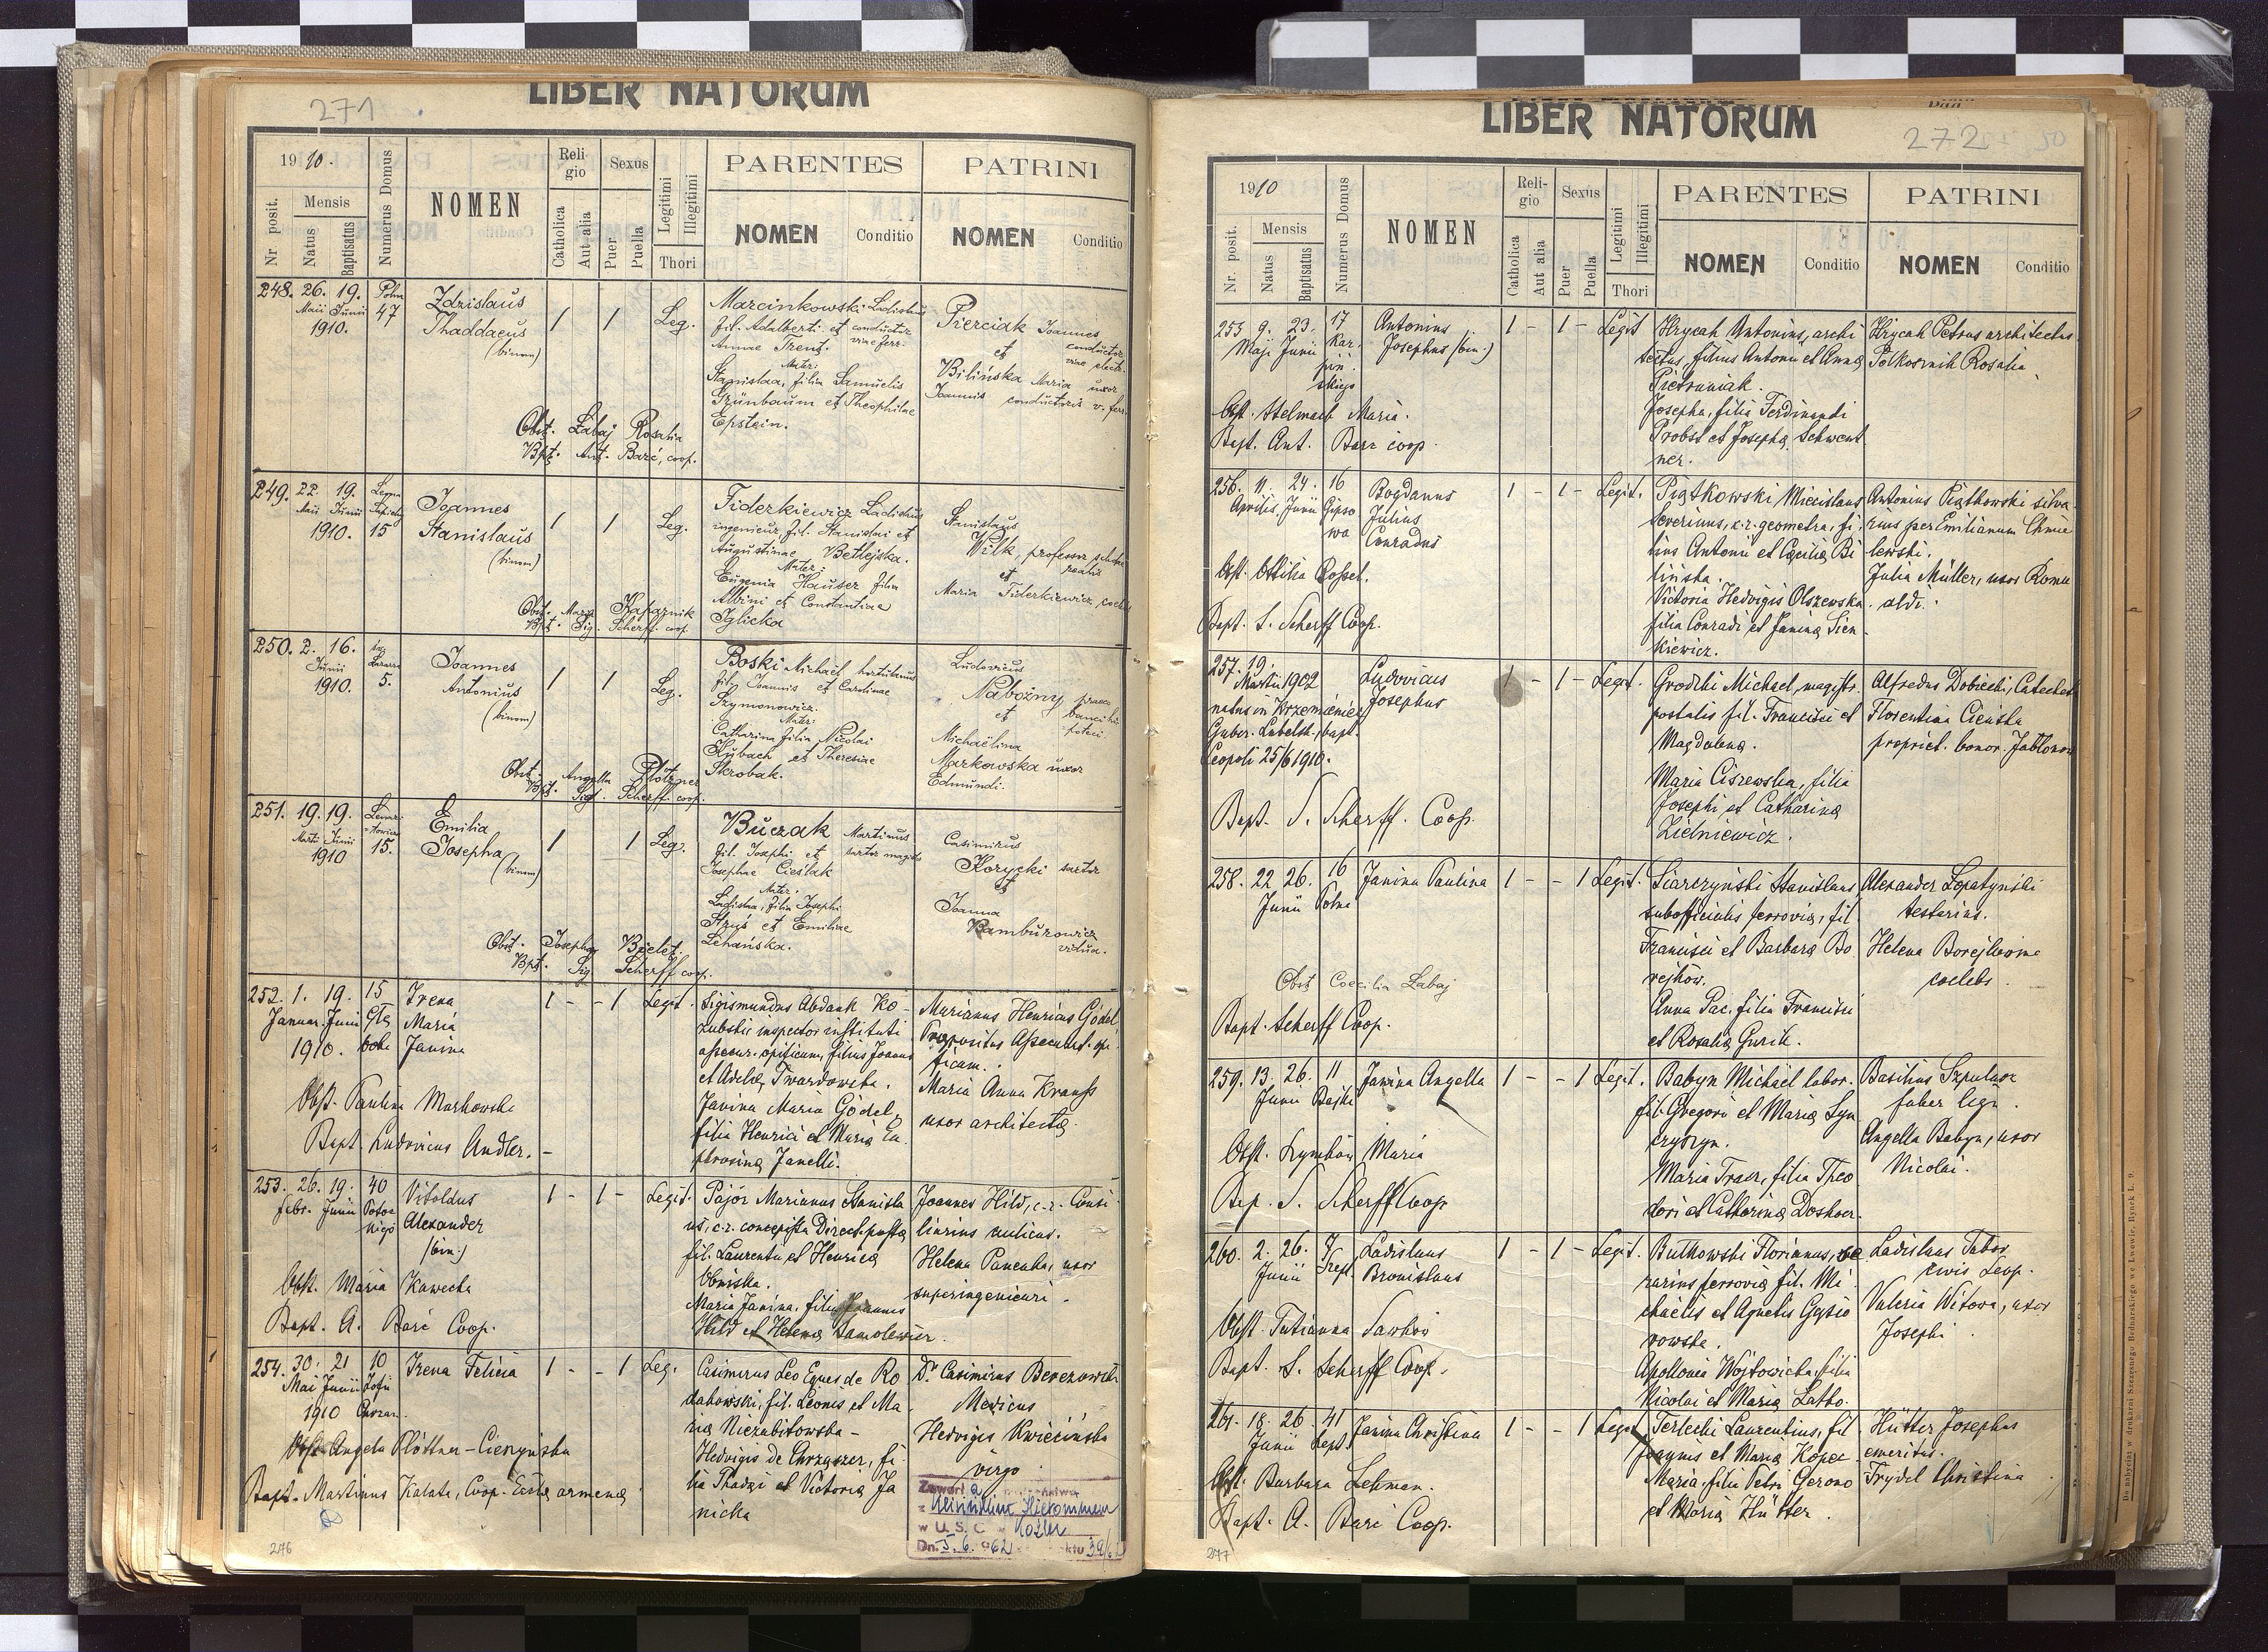 271
LIBER NATORUM
1910.
Nr. posit.
Mensis
Natus
Baptisatus
Numerus Domus
NOMEN
Religio
Catholica
Aut alia
Sexus
Puer
Puella
Legitimi
Illegitimi
Thori
PARENTES
NOMEN Conditio
PATRINI
NOMEN Conditio
248. 26. 19. Polna
Maii Junii 47
1910.
Zdzislaus
Thaddaeus
(binom)
1 1 Leg.
Marcinkowski Ladislaus
fil. Adalberti et conductor
Annae Trent. viae ferr.
Mater:
Stanislaa, filia Samuelis
Grünbaum et Theophilae
Epstein.
Pierciak Joannes
conductor
et viae electr.
Bilińska Maria uxor
Joannis conductoris v. ferr.
Obst. Łabaj Rosalia
Bpt. Ant. Barć, coop.
249. 22. 19. Leona
Maii Junii Sapiehy
1910. 15
Joannes
Stanislaus
(binom)
1 1 Leg.
Fiderkiewicz Ladislaus
ingenieur, fil. Stanislai et
Augustinae Betlejska.
Mater:
Eugenia Hauser filia
Albini et Constantiae
Iglicka
Stanislaus
Wilk, professor scholae
realis
et
Maria Fiderkiewicz, coel.
Obst. Maria Kaparnik
Bpt. Sig. Scherff. coop.
250. 2. 16. św.
Junii Łazarza
1910. 5.
Joannes
Antonius
(binom)
1 1 Leg.
Boski Michaël hortulanus
fil. Joannis et Carolinae
Szymonowicz.
Mater:
Catharina filia Nicolai
Kubach et Theresiae
Skrobak.
Ludovicus
Nabożny
et
Michaëlina
Markowska uxor
Edmundi.
Obst. Angella Plötzner
Bpt. Sig. Scherff. coop.
251. 19. 19.
Martii Junii
1910 15.
Emilia
Josepha
(binom)
1 1 Leg.
Buczak Martinus
fil. Josephi et sartor magister
Josephae Cieślak
Mater:
Ladislaa, filia Josephi
Struś et Emiliae
Lehańska.
Casimirus
Korycki sartor
et
Joanna
Bamburowicz
vidua.
Obst. Josepha Bielet.
Bpt. Sig. Scherff coop.
252. 1. 19. 15
Januar. Junii Głę
1910. boka
Irena
Maria
Janina
1 - - 1 Legit.
Sigismundus Abdank Ko-
zubski inspector instituti
assecur. opificum, filius Joannis
et Adela Twardowska.
Janina Maria Gödel,
filia Henrici et Maria Eu
phrosina Janelli.
Marianus Henricus Gödel
Propositus Assecurat. opi
ficum.
Maria Anna Krauss
uxor architecta.
Obst. Paulina Markowska
Bapt. Ludovicus Andler. -
253. 26. 19. 40
Febr. Junii Potoc
kiego
Vitoldus
Alexander
(bin.)
1 - 1 - Legit.
Pajor Marianus Stanisla
us, c.r. concepista Direct. posta
fil. Laurentii et Henrica
Obniska.
Maria Janina, filia Joannis
Hild et Helena Samolewicz.
Joannes Hild, c.r. Consi
liarius aulicus.
Helena Panenka, uxor
superingenieuri.
Obst. Maria Kawecka
Bapt. A. Barć Coop.
254. 30. 21 10
Mai Junii Zofii
1910 Chrzan.
Irena Felicia
1 - - 1 Leg.
Casimirus Leo Eques de Ro
dakowski, fil. Leonis et Ma
ria Niezabitowska -
Hedvigis de Chrząszcz, fi
lia Thadai et Victoria Ja
nicka
Dr. Casimirus Berezowski
Medicus
Hedvigis Kwiecińska
virgo
Obst. Angela Plöttner-Cieszyńska
Bapt. Martinus Kałata, Coop. Eccla armena
w U.S.C.
Dn. 5. 6. 962
246
LIBER NATORUM
272
50
1910
Nr. posit.
Mensis
Natus
Baptisatus
Numerus Domus
NOMEN
Religio
Catholica
Aut alia
Sexus
Puer
Puella
Legitimi
Illegitimi
Thori
PARENTES
NOMEN Conditio
PATRINI
NOMEN Conditio
255. 9. 23. 17
Maji Junii Kar.
piń
skiego
Antonius
Josephus (bin.)
1 - 1 - Legit
Hrycak Antonius, archi
tectus, filius Antonii et Anna
Pietruniak.
Josepha, filia Ferdinandi
Probst et Josepha Schwent
ner.
Hrycak Petrus architectus
Połkośnik Rosalia
Obst. Stelmach Maria.
Bapt. Ant. Barć coop.
256. 11. 24. 16
Aprilis, Junii Gipso
wa
Bogdanus
Julius
Conradus
1 - 1 - Legit.
Piątkowski Miecislaus
Severinus, c.r. geometra, fi
lius Antonii et Cacilia Bi
lińska.
Victoria Hedvigis Olszewska
filia Conradi et Janina Sien
kiewicz.
Antonius Piątkowski silva
rius per Emilianum Chmie
lewski.
Julia Müller, uxor Romu
aldi.
Obst. Ottilia Rossel.
Bapt. S. Scherff Coop.
257. 19.
Martii 1902
natus in Krzemieniec
Guber. Lubelsk., bapt.
Leopoli 25/6 1910.
Ludovicus
Josephus
1 - 1 - Legit.
Grodzki Michael, magistr.
postalis fil. Francisci et
Magdalena.
Maria Ciszewska, filia
Josephi et Catharina
Zielniewicz.
Alfredus Dobiecki, Catecheta
Florentina Cieńska
propriet. bonor. Jabłonow
Bapt. S. Scherff. Coop.
258. 22 26. 16
Junii Polna
Janina Paulina
1 - - 1 Legit.
Siarczyński Stanislaus
subofficialis ferrovia, fil
Francisci et Barbara Bo
rejków.
Anna Pac, filia Francisci
et Rosalia Gurik.
Alexander Lopatyński
testarius.
Helena Borejkówna
coelebs.
Obst. Coecilia Łabaj
Bapt. Scherff Coop.
259. 13. 26. 11
Junii Bajki
Janina Angella
1 - - 1 Legit.
Babyn Michael labor.
fil. Gregori et Maria Syn
czyszyn.
Maria Tracz, filia Theo
dori et Catharina Doskocz.
Basilius Szpular
faber lign.
Angella Babyn, uxor
Nicolai.
Obst. Maria
Bap. S. Scherff Coop
260. 2. 26. 7
Junii Szept.
Ladislaus
Bronislaus
1 - 1 - Legit.
Butkowski Florianus,
rarius ferrovia fil. Mi
chaelis et Agnetis Gąsio
rowska.
Apollonia Wojtowicka, filia
Nicolai et Maria Latko.
Ladislaus Tabor
civis Leop.
Valeria Witowa, uxor
Josephi
Obst. Tatianna Sawków
Bapt. S. Scherff Coop.
261. 18. 26. 41
Junii Szept.
Janina Christina
1 - - 1 Legit.
Terlecki Laurentius, fil
Joannis et Maria Kopeć
Maria, filia Petri Gerono
et Maria Hütter.
Hütter Josephus
emeritus.
Frydel Christina
Obst. Barbara Lehman.
Bapt. A. Barć Coop.
247
Do nabycia w drukarni Szczęsnego Bednarskiego we Lwowie, Rynek L. 9.